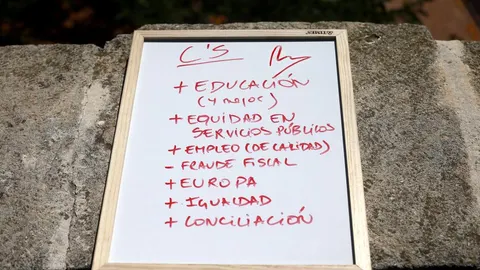 C'S
+ EDUCACIÓN
(Y MEJOR)
+ EQUIDAD EN
SERVICIOS PÚBLICOS
+ EMPLEO (DE CALIDAD)
- FRAUDE FISCAL
+ EUROPA
+ IGUALDAD
+ CONCILIACIÓN